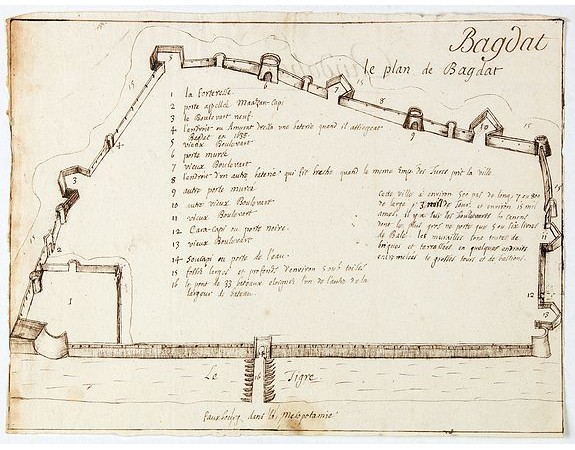 Bagdat
le plan de Bagdat
1 la forteresse
2 porte appellée Maazan-capi
3 le Boulevert neuf
4 l'endroit ou Amurat dressa une baterie quand il assiegeat
Bagdet en 1638.
5 vieux Boulevert
6 porte murée
7 vieux Boulevert
8 l'endroit d'un autre baterie qui fit breche quand le mesme Turcs prit la ville.
9 autre porte murée
10 autre vieux Boulevert
11 vieux Boulevert
12 Cara-capi ou porte noire.
13 vieux Boulevert
14 Soucapi ou porte de l'eau.
15 fossés larges et profonds d'environ 5 a 6 toises
16 le pont de 33 bateaux eloignez l'un de l'autre de la
largeur du bateau.
Cete ville a environ 500 pas de long, 7 ou 800
de large, 3 de Tour, et environ 15 mil
ames. il y a sur les boulevarts 60 canons
dont les plus gros ne porte que 5 ou six livres
de Bale. les murailles sont toutes de
briques et terrassées en quelques endroits
entremelées de grosses tours et de bastions.
Le Tigre
Fauxbourg dans la Mesopotamie